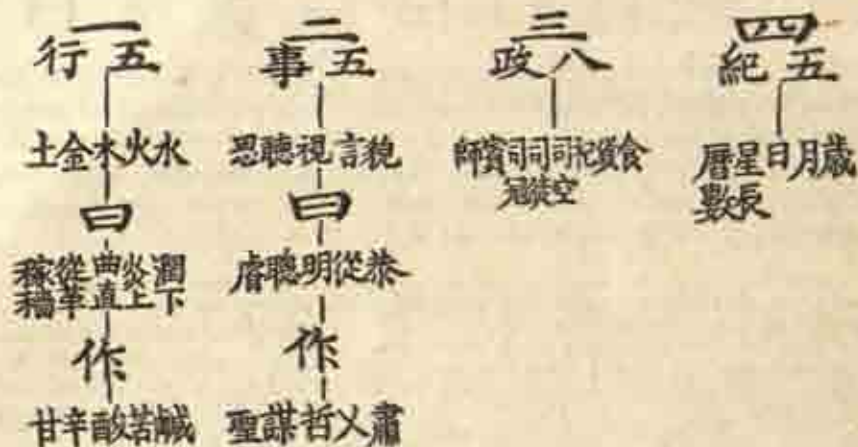 一
五行
水火木金土
曰
潤下炎上曲直從革稼穡
作
鹹苦酸辛甘
二
五事
貌言視聽思
曰
恭從明聰睿
作
肅乂哲謀聖
三
八政
食貨祀司空司徒司寇賓師
四
五紀
歲月日星辰曆數